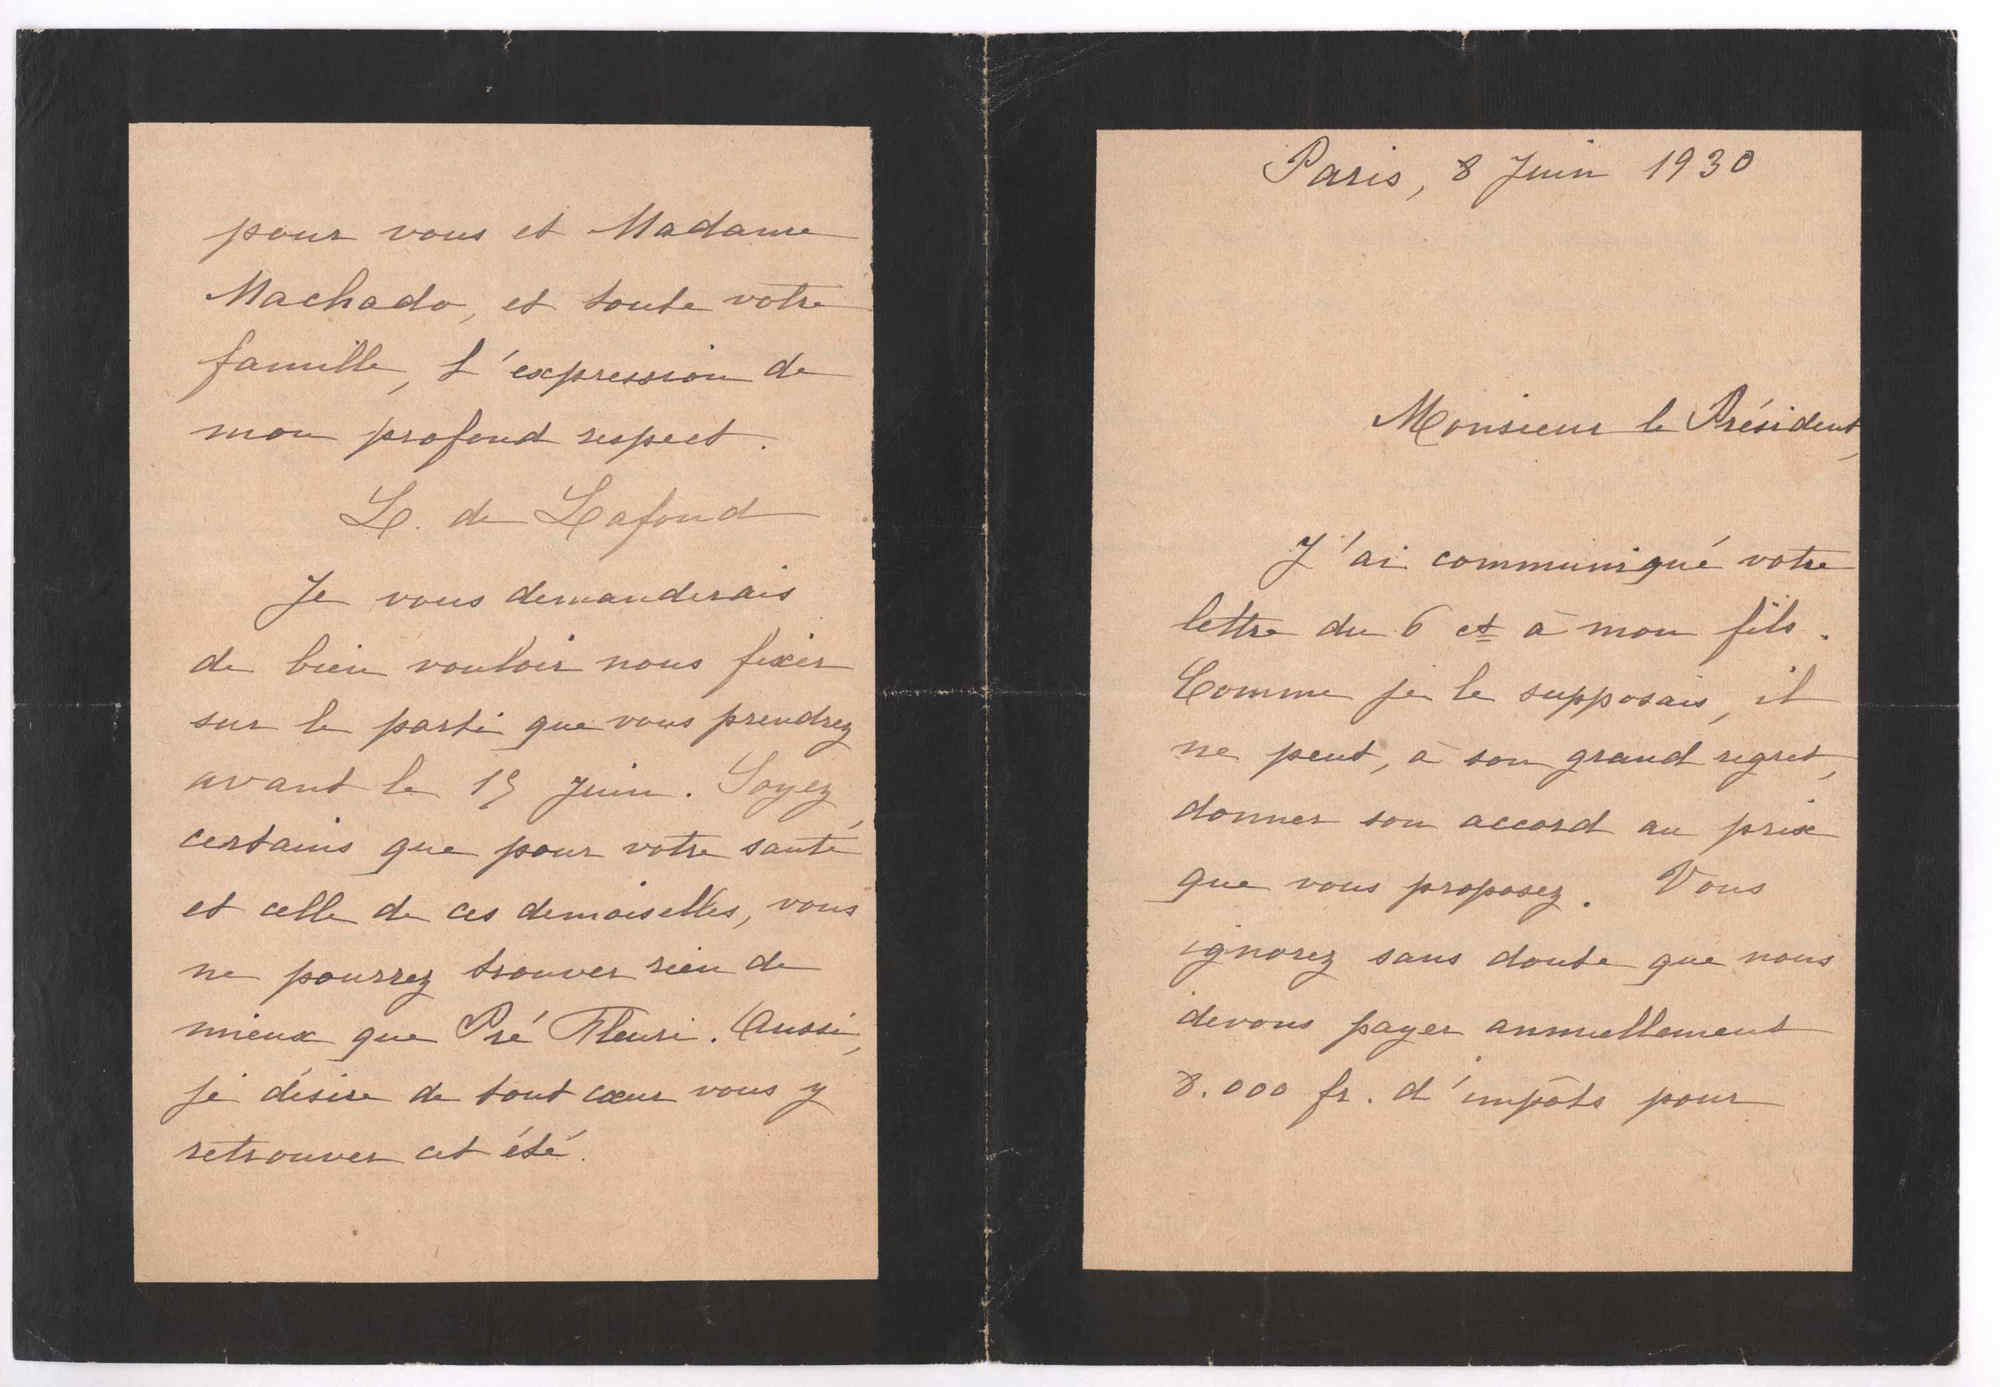 Paris, 8 Juin 1930
Monsieur le Président,
J'ai communiqué votre
lettre du 6 ct à mon fils.
Comme je le supposais, il
ne peut, à son grand regret,
donner son accord au prix
que vous proposez. Vous
ignorez sans doute que nous
devons payer annuellement
8.000 fr. d'impôts pour
pour vous et Madame
Machado, et toute votre
famille, l'expression de
mon profond respect.
L. de Lafond
Je vous demanderais
de bien vouloir nous fixer
sur le parti que vous prendrez
avant le 15 Juin. Soyez
certains que pour votre santé
et celle de ces demoiselles, vous
ne pourrez trouver rien de
mieux que Pré Fleuri. Aussi,
je désire de tout cœur vous y
retrouver cet été.